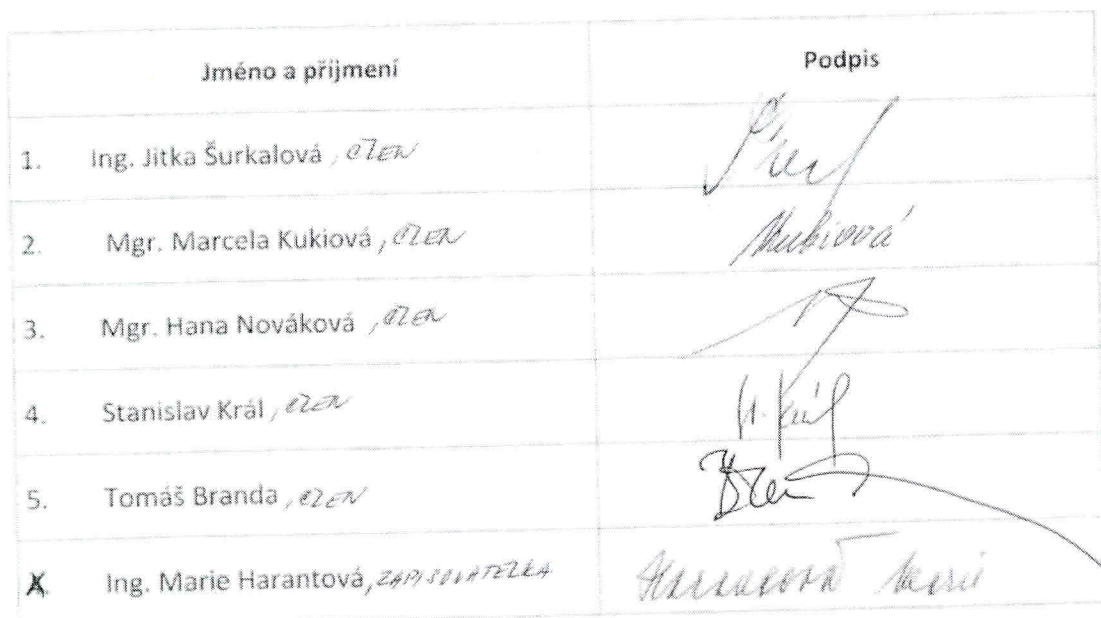 Jméno a příjmení Podpis
1. Ing. Jitka Šurkalová, ČLEN
2. Mgr. Marcela Kukiová, ČLEN Kukiová
3. Mgr. Hana Nováková, ČLEN
4. Stanislav Král, ČLEN St. Král
5. Tomáš Branda, ČLEN
X. Ing. Marie Harantová, ZAPISOVATELKA Harantová Marie